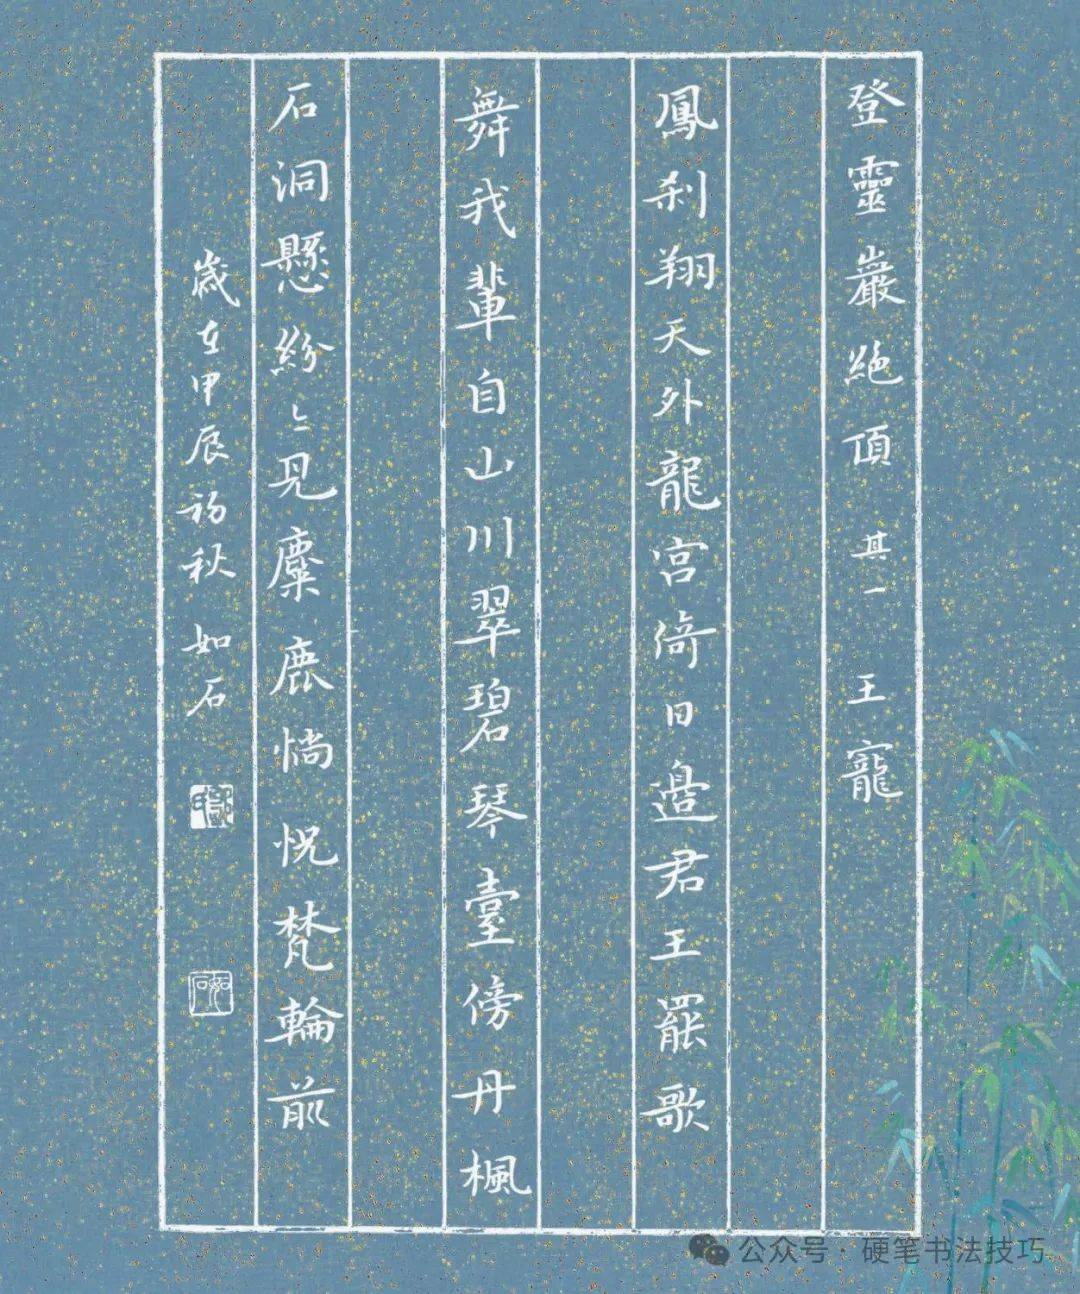 登靈巖絕頂 其一 王寵
鳳刹翔天外龍宮倚日邊君王罷歌
舞我輩自山川翠碧琴臺傍丹楓
石洞懸紛〻見麋鹿惝怳梵輪前
歲在甲辰初秋 如石
如石
公众号·硬笔书法技巧